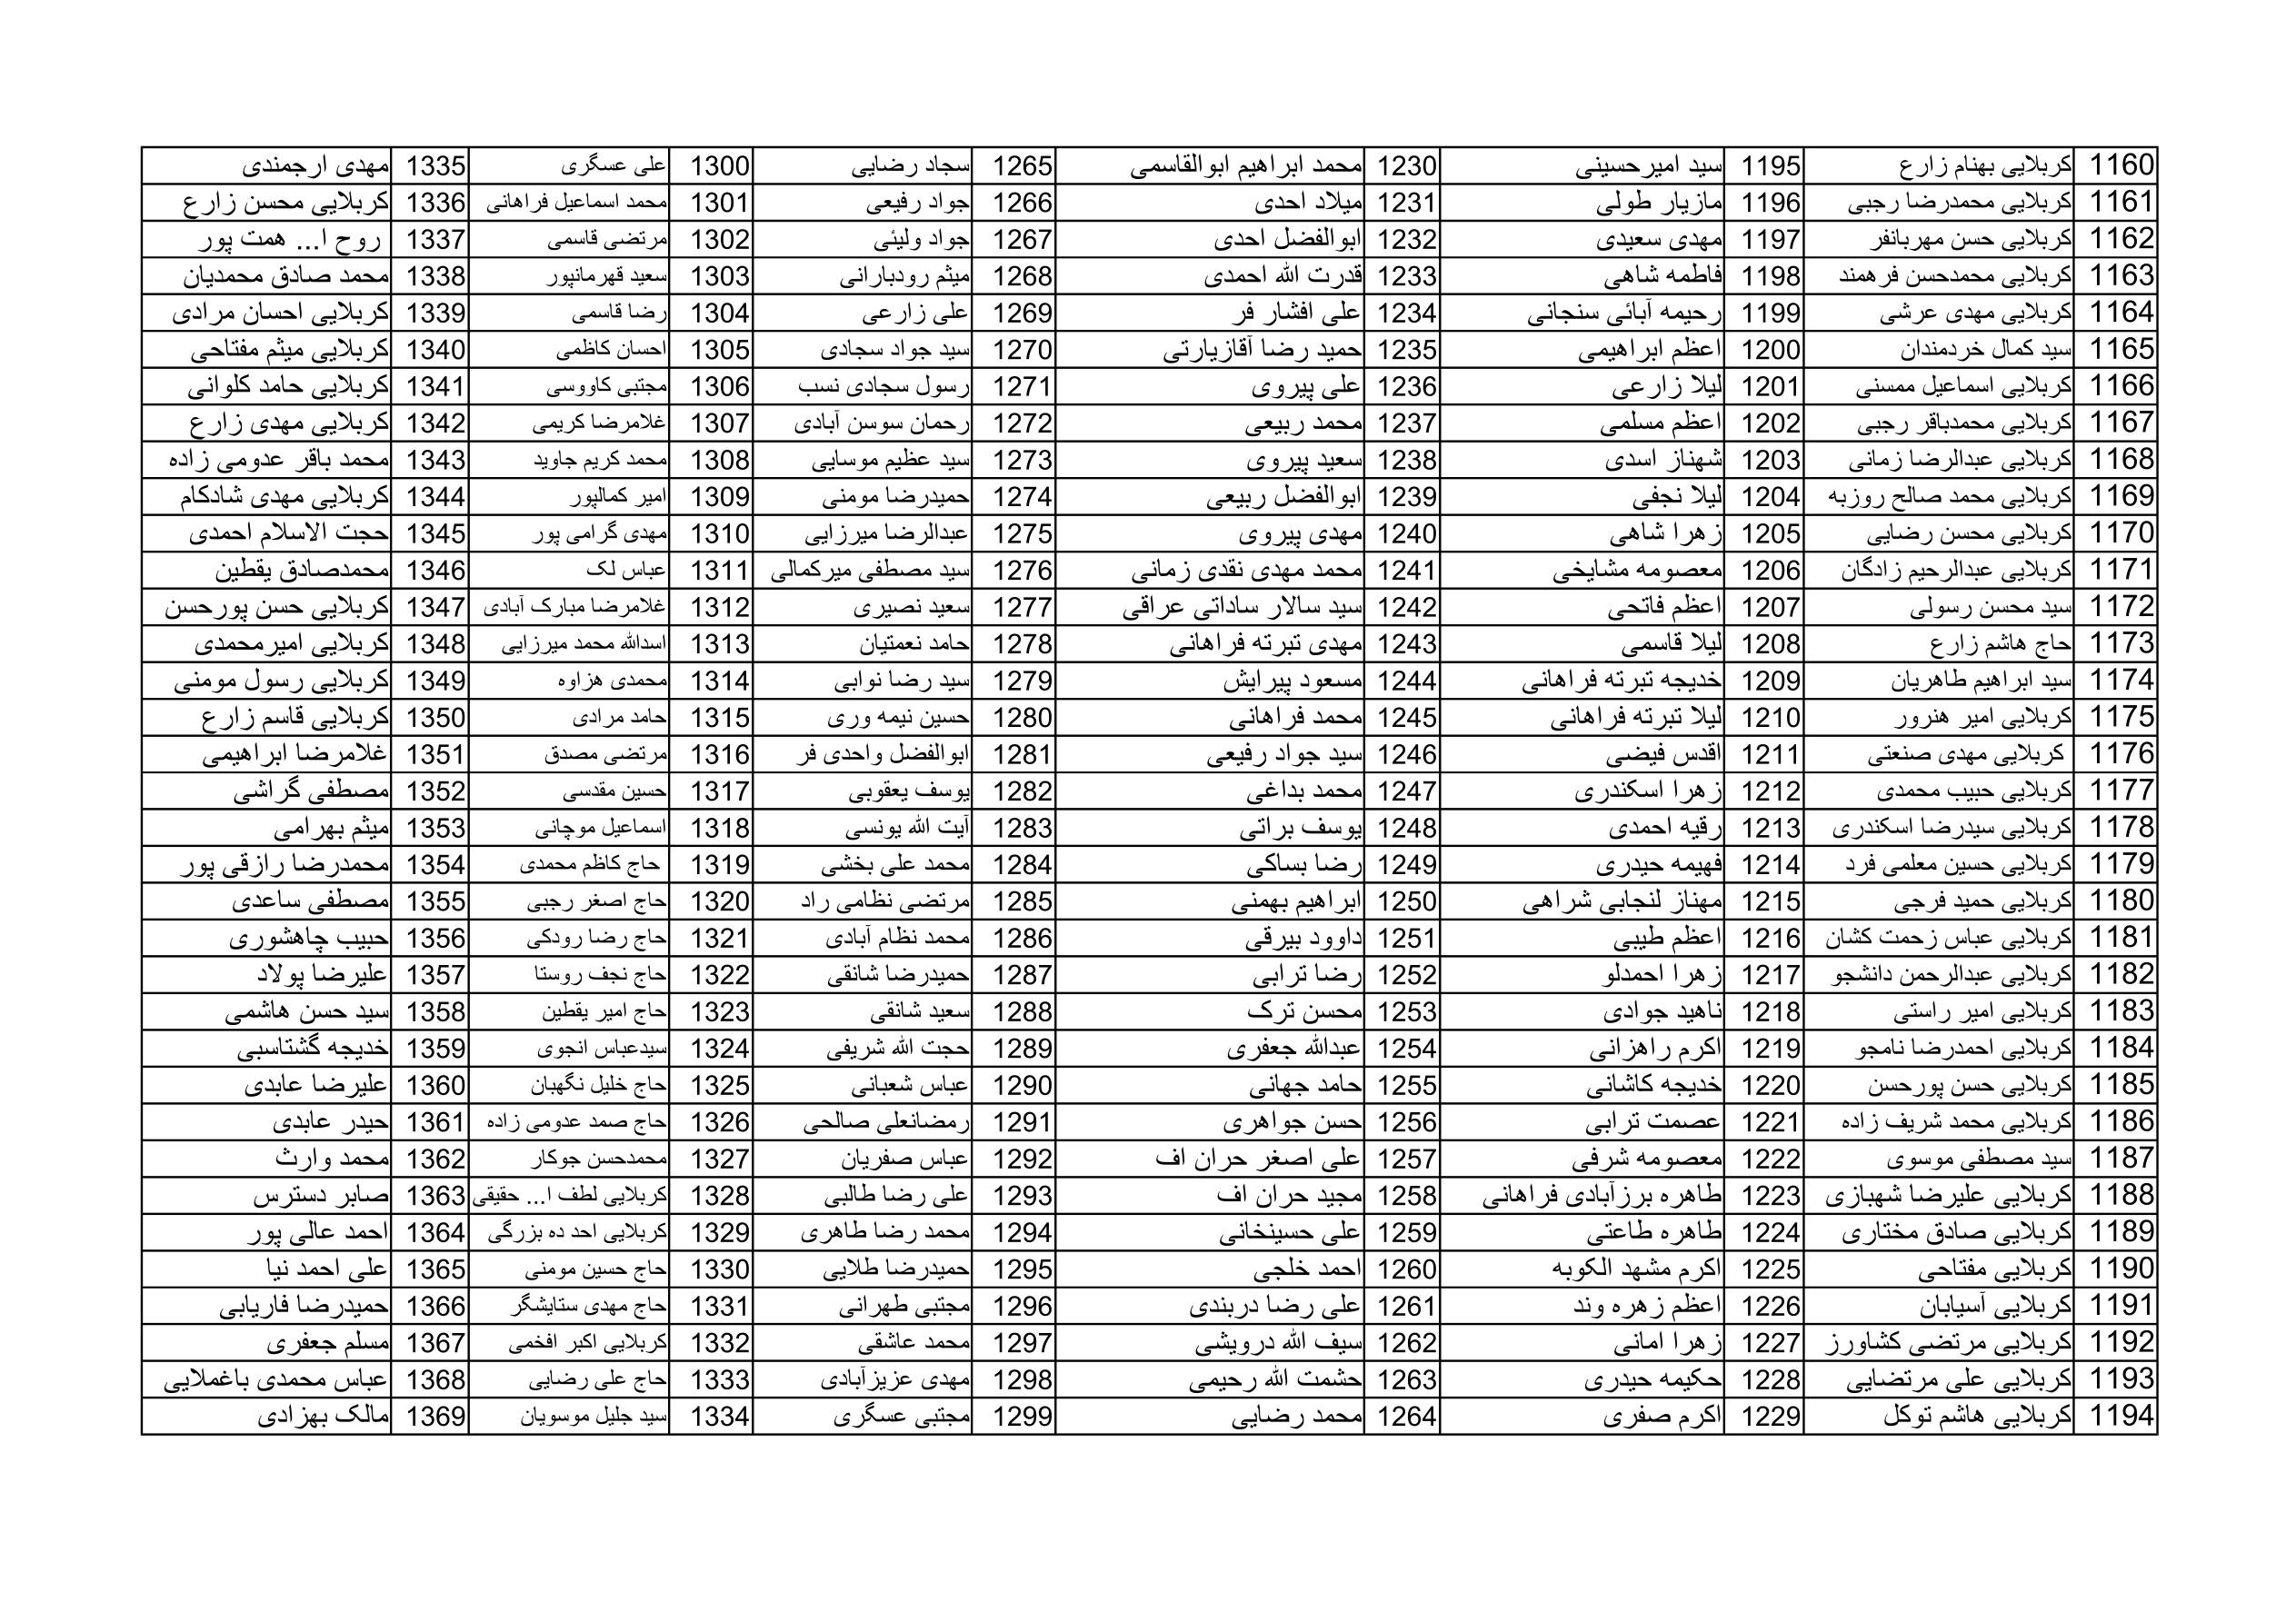 1160 کربلایی بهنام زارع 1195 سید امیرحسینی 1230 محمد ابراهیم ابوالقاسمی 1265 سجاد رضایی 1300 علی عسگری 1335 مهدی ارجمندی
1161 کربلایی محمدرضا رجبی 1196 مازیار طولی 1231 میلاد احدی 1266 جواد رفیعی 1301 محمد اسماعیل فراهانی 1336 کربلایی محسن زارع
1162 کربلایی حسن مهربانفر 1197 مهدی سعیدی 1232 ابوالفضل احدی 1267 جواد ولیئی 1302 مرتضی قاسمی 1337 روح ا... همت پور
1163 کربلایی محمدحسن فرهمند 1198 فاطمه شاهی 1233 قدرت الله احمدی 1268 میثم رودبارانی 1303 سعید قهرمانپور 1338 محمد صادق محمدیان
1164 کربلایی مهدی عرشی 1199 رحیمه آبائی سنجانی 1234 علی افشار فر 1269 علی زارعی 1304 رضا قاسمی 1339 کربلایی احسان مرادی
1165 سید کمال خردمندان 1200 اعظم ابراهیمی 1235 حمید رضا آقازیارتی 1270 سید جواد سجادی 1305 احسان کاظمی 1340 کربلایی میثم مفتاحی
1166 کربلایی اسماعیل ممسنی 1201 لیلا زارعی 1236 علی پیروی 1271 رسول سجادی نسب 1306 مجتبی کاووسی 1341 کربلایی حامد کلوانی
1167 کربلایی محمدباقر رجبی 1202 اعظم مسلمی 1237 محمد ربیعی 1272 رحمان سوسن آبادی 1307 غلامرضا کریمی 1342 کربلایی مهدی زارع
1168 کربلایی عبدالرضا زمانی 1203 شهناز اسدی 1238 سعید پیروی 1273 سید عظیم موسایی 1308 محمد کریم جاوید 1343 محمد باقر عدومی زاده
1169 کربلایی محمد صالح روزبه 1204 لیلا نجفی 1239 ابوالفضل ربیعی 1274 حمیدرضا مومنی 1309 امیر کمالپور 1344 کربلایی مهدی شادکام
1170 کربلایی محسن رضایی 1205 زهرا شاهی 1240 مهدی پیروی 1275 عبدالرضا میرزایی 1310 مهدی گرامی پور 1345 حجت الاسلام احمدی
1171 کربلایی عبدالرحیم زادگان 1206 معصومه مشایخی 1241 محمد مهدی نقدی زمانی 1276 سید مصطفی میرکمالی 1311 عباس لک 1346 محمدصادق یقطین
1172 سید محسن رسولی 1207 اعظم فاتحی 1242 سید سالار ساداتی عراقی 1277 سعید نصیری 1312 غلامرضا مبارک آبادی 1347 کربلایی حسن پورحسن
1173 حاج هاشم زارع 1208 لیلا قاسمی 1243 مهدی تبرته فراهانی 1278 حامد نعمتیان 1313 اسدالله محمد میرزایی 1348 کربلایی امیرمحمدی
1174 سید ابراهیم طاهریان 1209 خدیجه تبرته فراهانی 1244 مسعود پیرایش 1279 سید رضا نوابی 1314 محمدی هزاوه 1349 کربلایی رسول مومنی
1175 کربلایی امیر هنرور 1210 لیلا تبرته فراهانی 1245 محمد فراهانی 1280 حسین نیمه وری 1315 حامد مرادی 1350 کربلایی قاسم زارع
1176 کربلایی مهدی صنعتی 1211 اقدس فیضی 1246 سید جواد رفیعی 1281 ابوالفضل واحدی فر 1316 مرتضی مصدق 1351 غلامرضا ابراهیمی
1177 کربلایی حبیب محمدی 1212 زهرا اسکندری 1247 محمد بداغی 1282 یوسف یعقوبی 1317 حسین مقدسی 1352 مصطفی گراشی
1178 کربلایی سیدرضا اسکندری 1213 رقیه احمدی 1248 یوسف براتی 1283 آیت الله یونسی 1318 اسماعیل موچانی 1353 میثم بهرامی
1179 کربلایی حسین معلمی فرد 1214 فهیمه حیدری 1249 رضا بساکی 1284 محمد علی بخشی 1319 حاج کاظم محمدی 1354 محمدرضا رازقی پور
1180 کربلایی حمید فرجی 1215 مهناز لنجابی شراهی 1250 ابراهیم بهمنی 1285 مرتضی نظامی راد 1320 حاج اصغر رجبی 1355 مصطفی ساعدی
1181 کربلایی عباس زحمت کشان 1216 اعظم طیبی 1251 داوود بیرقی 1286 محمد نظام آبادی 1321 حاج رضا رودکی 1356 حبیب چاهشوری
1182 کربلایی عبدالرحمن دانشجو 1217 زهرا احمدلو 1252 رضا ترابی 1287 حمیدرضا شانقی 1322 حاج نجف روستا 1357 علیرضا پولاد
1183 کربلایی امیر راستی 1218 ناهید جوادی 1253 محسن ترک 1288 سعید شانقی 1323 حاج امیر یقطین 1358 سید حسن هاشمی
1184 کربلایی احمدرضا نامجو 1219 اکرم راهزانی 1254 عبدالله جعفری 1289 حجت الله شریفی 1324 سیدعباس انجوی 1359 خدیجه گشتاسبی
1185 کربلایی حسن پورحسن 1220 خدیجه کاشانی 1255 حامد جهانی 1290 عباس شعبانی 1325 حاج خلیل نگهبان 1360 علیرضا عابدی
1186 کربلایی محمد شریف زاده 1221 عصمت ترابی 1256 حسن جواهری 1291 رمضانعلی صالحی 1326 حاج صمد عدومی زاده 1361 حیدر عابدی
1187 سید مصطفی موسوی 1222 معصومه شرفی 1257 علی اصغر حران اف 1292 عباس صفریان 1327 محمدحسن جوکار 1362 محمد وارث
1188 کربلایی علیرضا شهبازی 1223 طاهره برزآبادی فراهانی 1258 مجید حران اف 1293 علی رضا طالبی 1328 کربلایی لطف ا... حقیقی 1363 صابر دسترس
1189 کربلایی صادق مختاری 1224 طاهره طاعتی 1259 علی حسینخانی 1294 محمد رضا طاهری 1329 کربلایی احد ده بزرگی 1364 احمد عالی پور
1190 کربلایی مفتاحی 1225 اکرم مشهد الکوبه 1260 احمد خلجی 1295 حمیدرضا طلایی 1330 حاج حسین مومنی 1365 علی احمد نیا
1191 کربلایی آسیابان 1226 اعظم زهره وند 1261 علی رضا دربندی 1296 مجتبی طهرانی 1331 حاج مهدی ستایشگر 1366 حمیدرضا فاریابی
1192 کربلایی مرتضی کشاورز 1227 زهرا امانی 1262 سیف الله درویشی 1297 محمد عاشقی 1332 کربلایی اکبر افخمی 1367 مسلم جعفری
1193 کربلایی علی مرتضایی 1228 حکیمه حیدری 1263 حشمت الله رحیمی 1298 مهدی عزیزآبادی 1333 حاج علی رضایی 1368 عباس محمدی باغملایی
1194 کربلایی هاشم توکل 1229 اکرم صفری 1264 محمد رضایی 1299 مجتبی عسگری 1334 سید جلیل موسویان 1369 مالک بهزادی